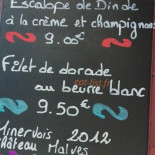 Escalope de Dinde
à la crème et champignons
9.00€
Filet de dorade
au beurre blanc
9.50€
Minervois 2012
Château Malves